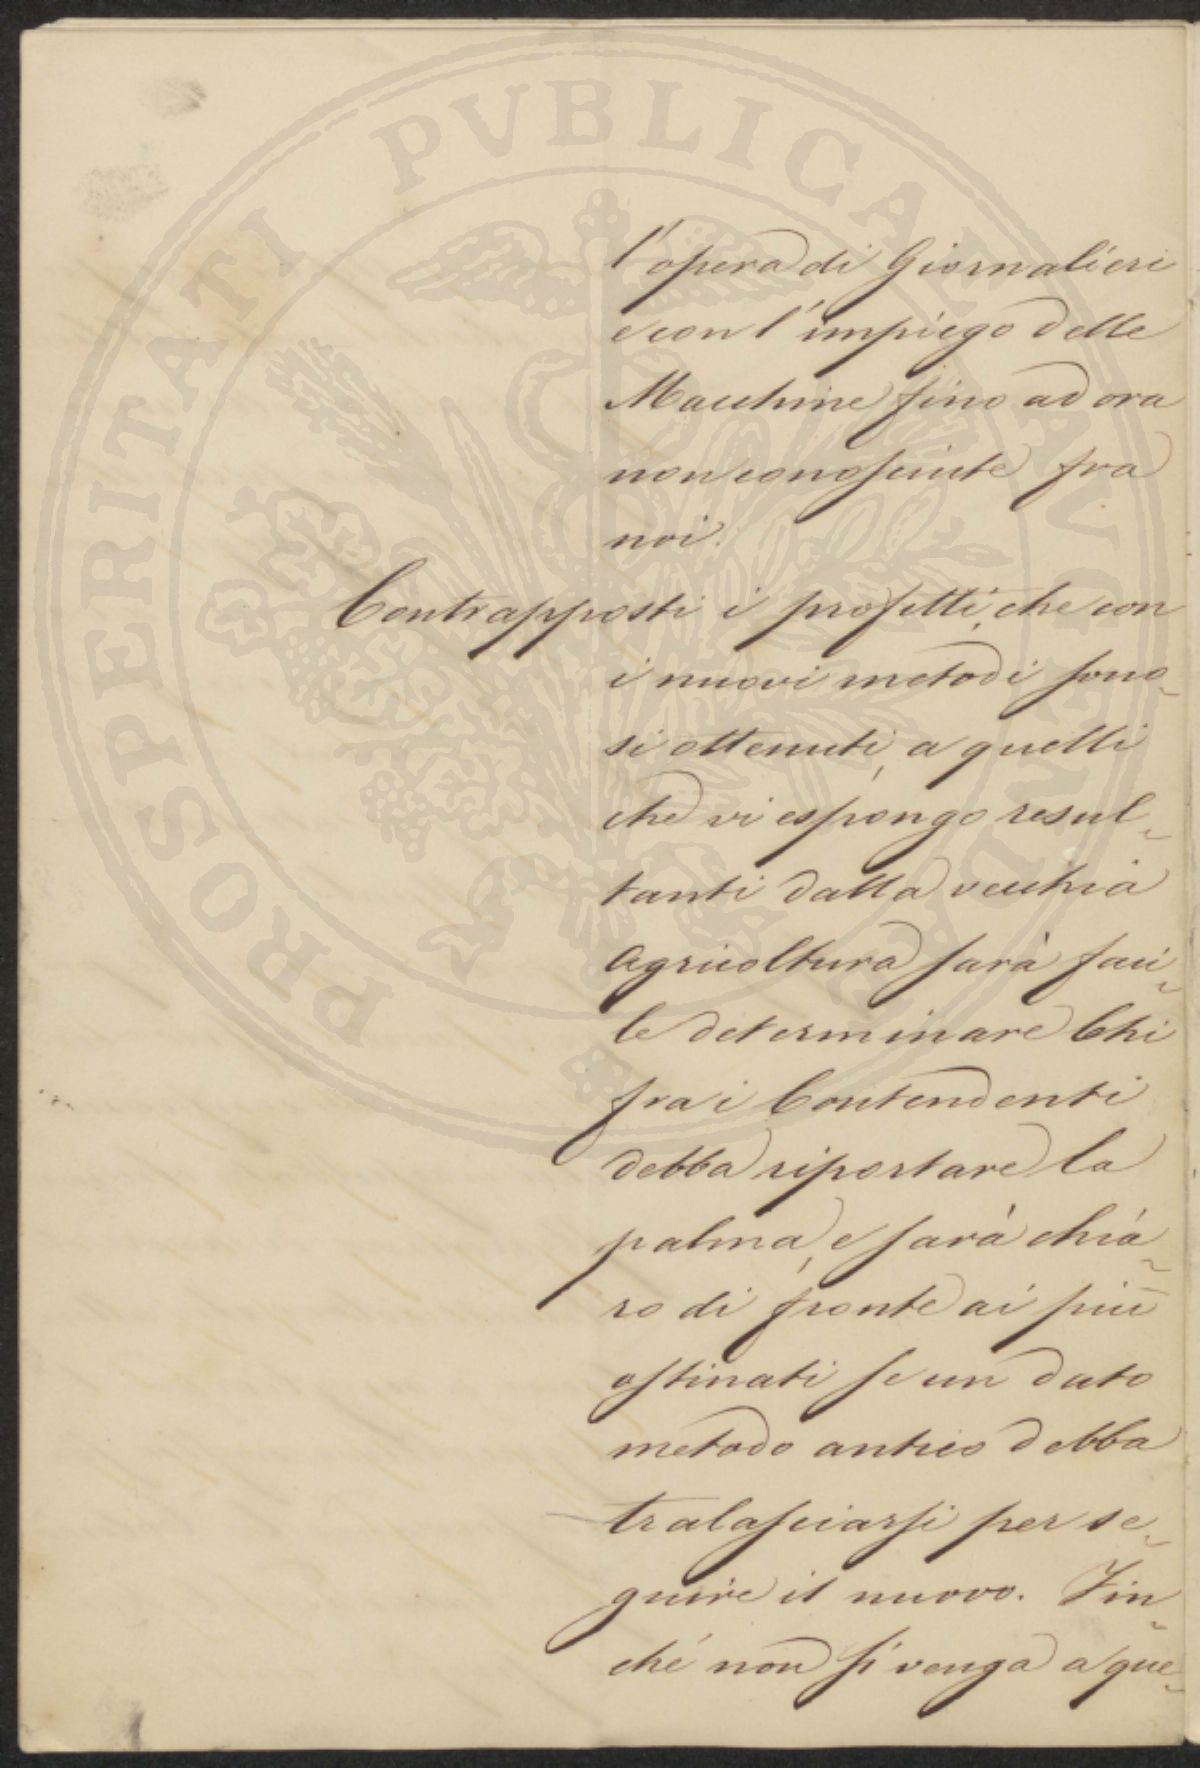 PROSPERITATI PVBLICAE AVGENDAE
l'opera di Giornalieri
e con l'impiego delle
Macchine fino ad ora
non conosciute fra
noi.
Contrapposti i profitti, che con
i nuovi metodi sono-
si ottenuti, a quelli
che vi espongo resul-
tanti dalla vecchia
Agricoltura sarà faci-
le determinare Chi
fra i Contendenti
debba riportare la
palma, e sarà chia-
ro di fronte ai più
ostinati se un dato
metodo antico debba
tralasciarsi per se-
guire il nuovo. Fin-
ché non si venga a que-